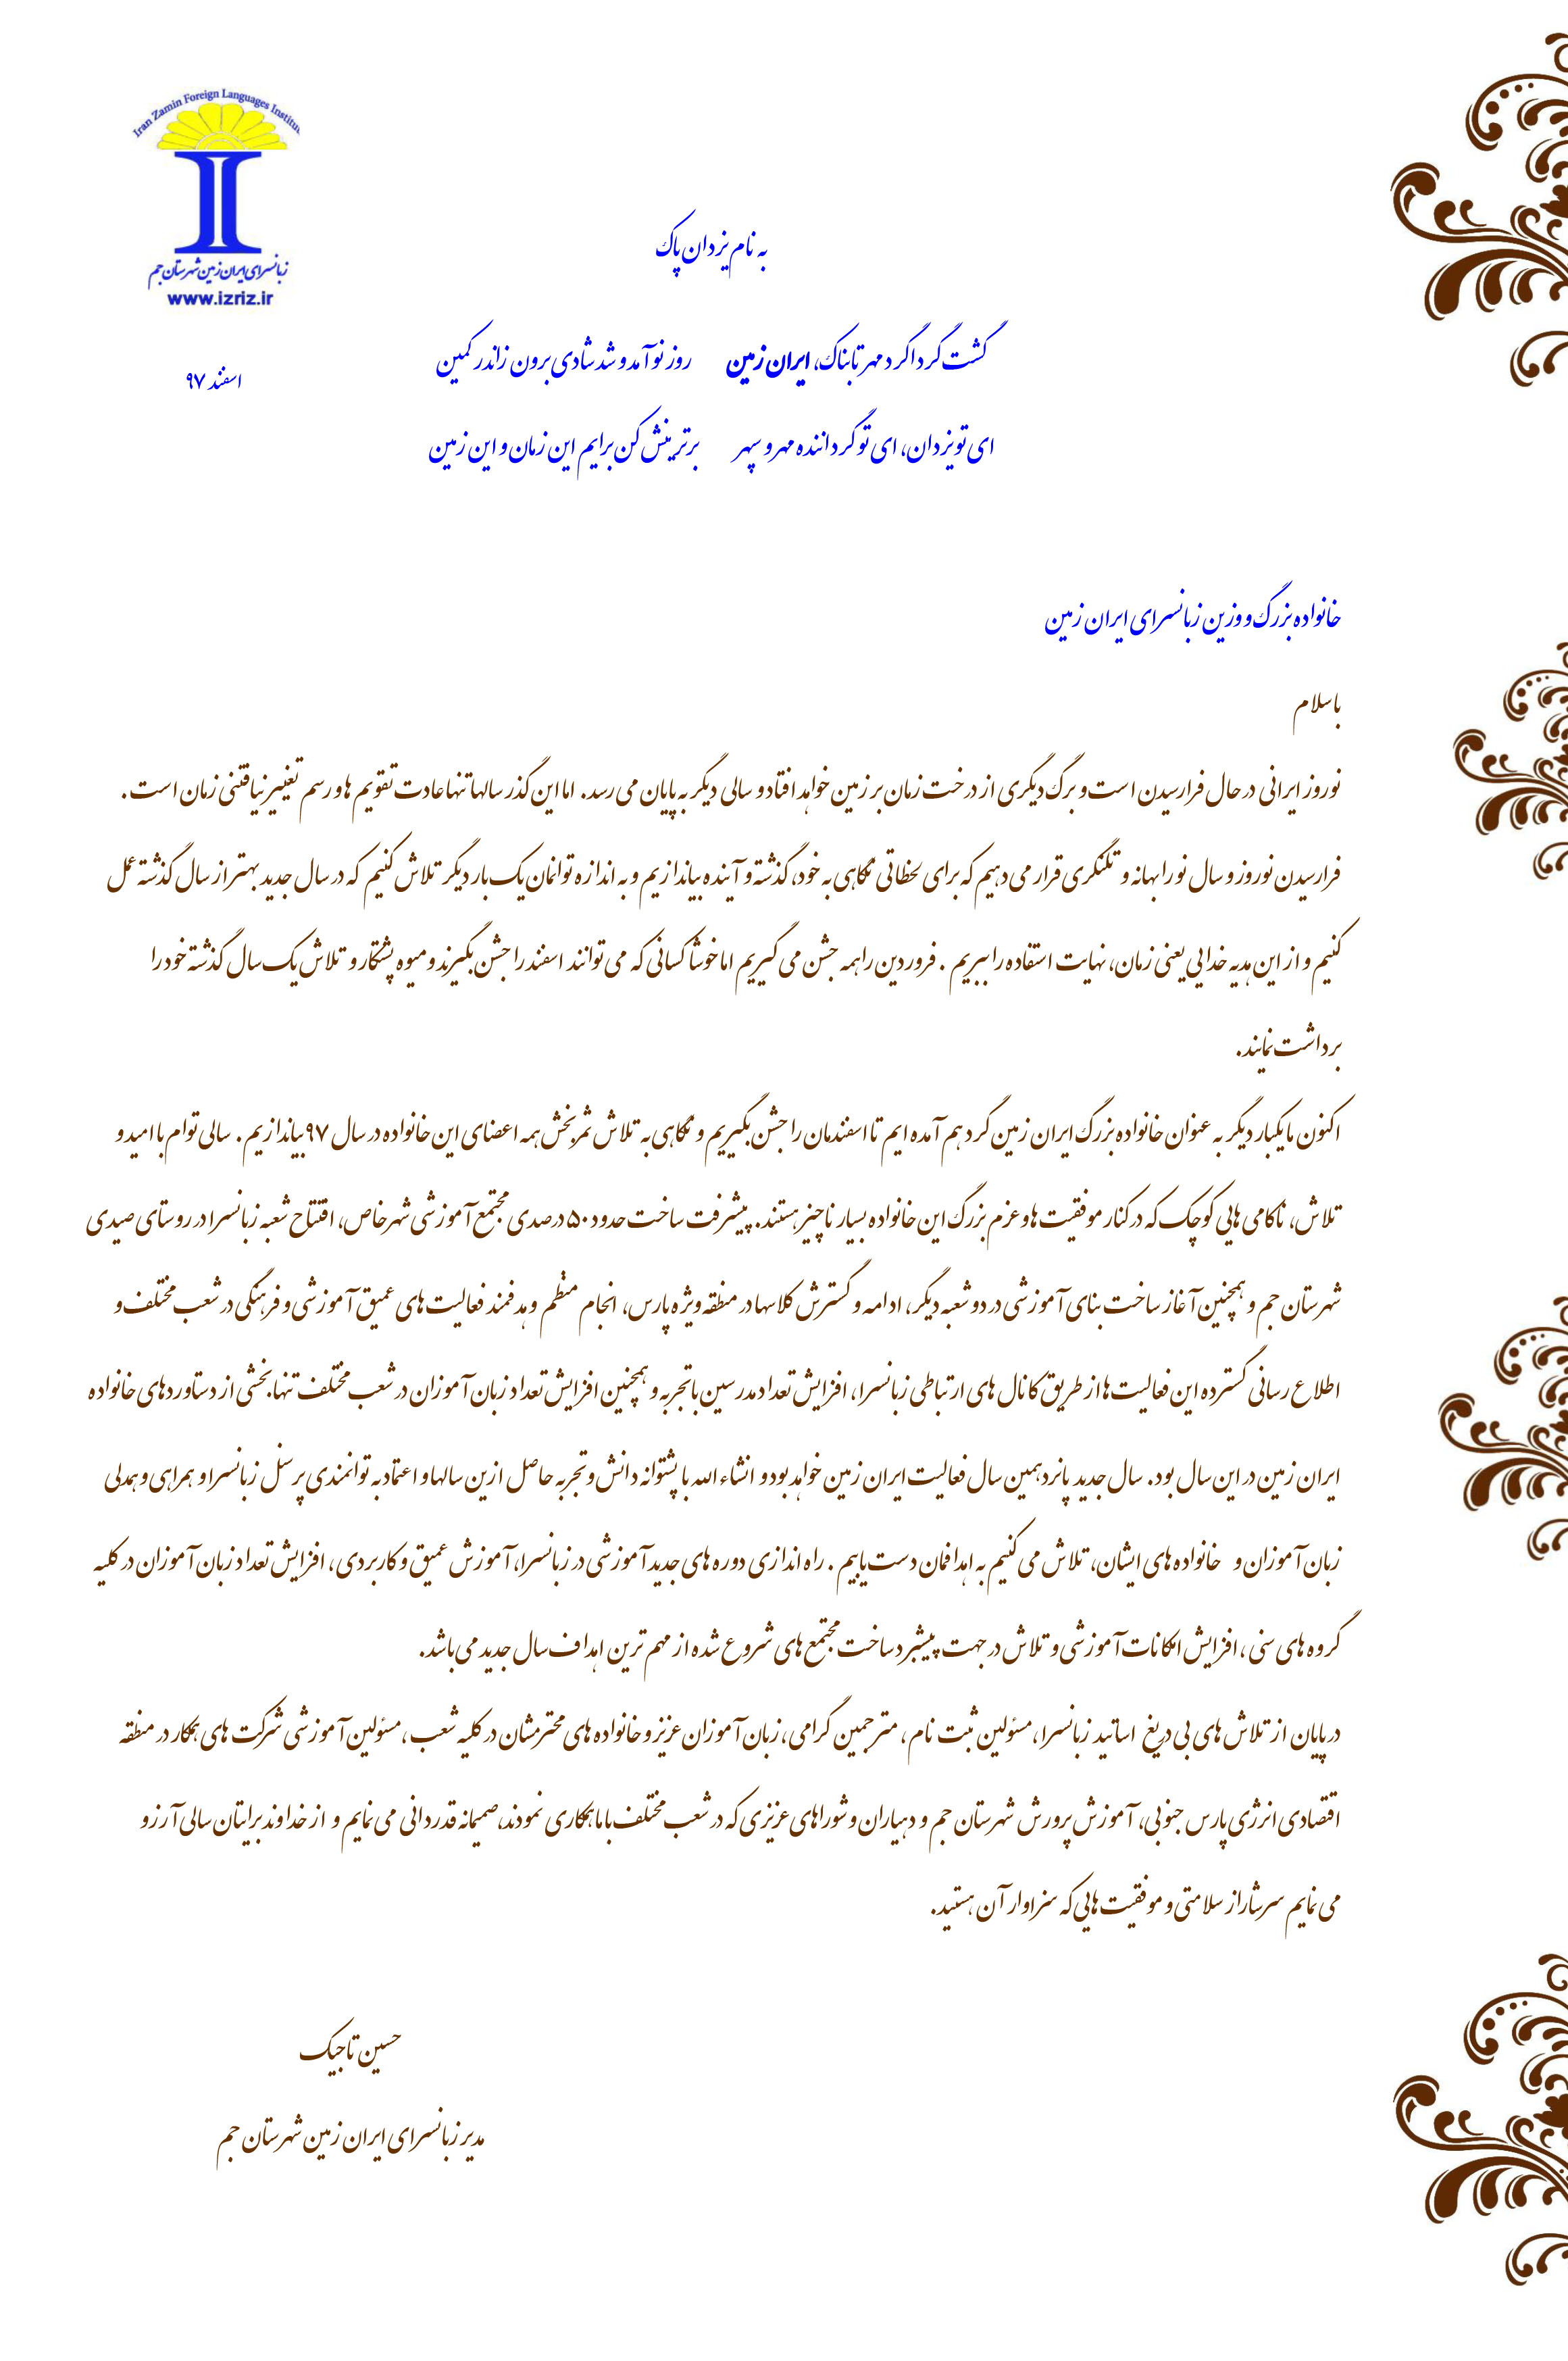 Iran Zamin Foreign Languages Institute
زبانسرای ایران زمین شهرستان جم
www.izriz.ir
به نام یزدان پاک
گشت گرداگرد مهر تابناک، ایران زمین روز نو آمد و شد شادی برون زاندر کمین
اسفند ۹۷
ای تو یزدان، ای تو گرداننده مهر و سپهر برترینش کن برایم این زمان و این زمین
خانواده بزرگ و وزین زبانسرای ایران زمین
با سلام
نوروز ایرانی در حال فرارسیدن است و برگ دیگری از درخت زمان بر زمین خواهد افتاد و سالی دیگر به پایان می رسد. اما این گذر سالها تنها عادت تقویم ها و رسم تغییر نیافتنی زمان است.
فرارسیدن نوروز و سال نو را بهانه و تلنگری قرار می دهیم که برای لحظاتی نگاهی به خود، گذشته و آینده بیاندازیم و به اندازه توانمان یک بار دیگر تلاش کنیم که در سال جدید بهتر از سال گذشته عمل
کنیم و از این هدیه خدایی یعنی زمان، نهایت استفاده را ببریم . فروردین را همه جشن می گیریم اما خوشا کسانی که می توانند اسفند را جشن بگیرند و میوه پشتکار و تلاش یک سال گذشته خود را
برداشت نمایند.
اکنون ما یکبار دیگر به عنوان خانواده بزرگ ایران زمین گرد هم آمده ایم تا اسفندمان را جشن بگیریم و نگاهی به تلاش ثمربخش همه اعضای این خانواده در سال ۹۷ بیاندازیم . سالی توام با امید و
تلاش، ناکامی هایی کوچک که در کنار موفقیت ها و عزم بزرگ این خانواده بسیار ناچیز هستند. پیشرفت ساخت حدود ۵۰ درصدی مجتمع آموزشی شهرخاص، افتتاح شعبه زبانسرا در روستای صیدی
شهرستان جم و همچنین آغاز ساخت بنای آموزشی در دو شعبه دیگر، ادامه و گسترش کلاسها در منطقه ویژه پارس، انجام منظم و هدفمند فعالیت های عمیق آموزشی و فرهنگی در شعب مختلف و
اطلاع رسانی گسترده این فعالیت ها از طریق کانال های ارتباطی زبانسرا، افزایش تعداد مدرسین با تجربه و همچنین افزایش تعداد زبان آموزان در شعب مختلف تنها بخشی از دستاوردهای خانواده
ایران زمین در این سال بود. سال جدید پانزدهمین سال فعالیت ایران زمین خواهد بود و انشاء الله با پشتوانه دانش و تجربه حاصل ازین سالها و اعتماد به توانمندی پرسنل زبانسرا و همراهی و همدلی
زبان آموزان و خانواده های ایشان، تلاش می کنیم به اهدافمان دست یابیم . راه اندازی دوره های جدید آموزشی در زبانسرا، آموزش عمیق و کاربردی، افزایش تعداد زبان آموزان در کلیه
گروه های سنی ، افزایش امکانات آموزشی و تلاش در جهت پیشبرد ساخت مجتمع های شروع شده از مهم ترین اهداف سال جدید می باشد.
در پایان از تلاش های بی دریغ اساتید زبانسرا، مسئولین ثبت نام ، مترجمین گرامی، زبان آموزان عزیز و خانواده های محترمشان در کلیه شعب ، مسئولین آموزشی شرکت های همکار در منطقه
اقتصادی انرژی پارس جنوبی، آموزش پرورش شهرستان جم و دهیاران و شوراهای عزیزی که در شعب مختلف با ما همکاری نمودند، صمیمانه قدردانی می نمایم و از خداوند برایتان سالی آرزو
می نمایم سرشار از سلامتی و موفقیت هایی که سزاوار آن هستید.
حسین تاجیک
مدیر زبانسرای ایران زمین شهرستان جم